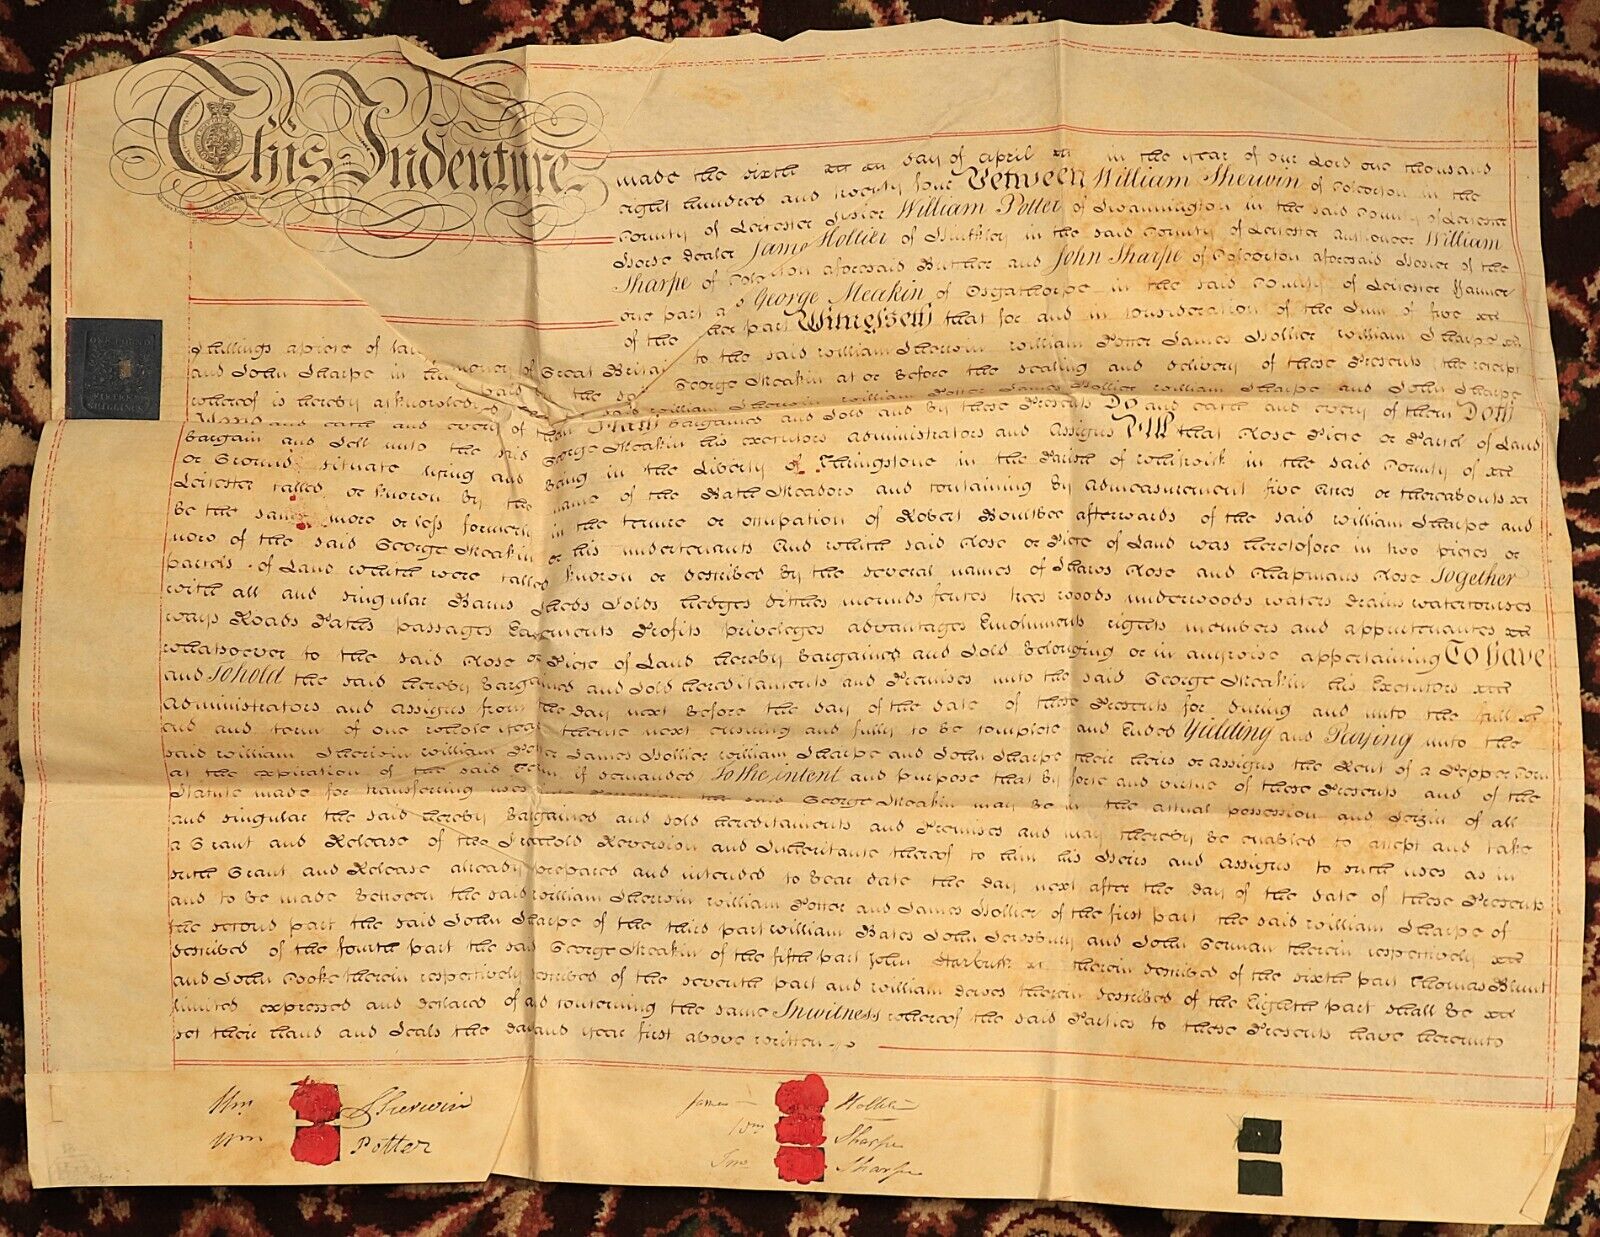 This Indenture
made the sixth day of April in the year of our Lord one thousand
eight hundred and twenty four Between William Sherwin of Coleorton in the
County of Leicester William Potter of Swannington in the said County of Leicester
Horse Dealer James Hollier of Hinckley in the said County of Leicester Auctioneer William
Sharpe of aforesaid Butcher and John Sharpe of Coleorton aforesaid of the
one part George Meakin of Osgathorpe in the said County of Leicester
of the part Witnesseth that for and in consideration of the Sum of five
Shillings apiece of money of Great to the said William Sherwin William Potter James Hollier William Sharpe
and John Sharpe in said George Meakin at or before the sealing and delivery of these Presents the receipt
ONE POUND
FIFTEEN
SHILLINGS
whereof is hereby said William Sherwin William Potter James Hollier William Sharpe and John Sharpe
and each and every of them Bargained and Sold and by these Presents Do and each and every of them Doth
Bargain and Sell unto the said George Meakin his executors Administrators and Assigns All that Close Piece or Parcel of Land
or Ground situate lying and Being in the Liberty of Thringstone in the Parish of Whitwick in the said County of
Leicester called or known by the name of the Bath Meadow and containing by Admeasurement five Acres or thereabouts
be the same more or less formerly in the tenure or occupation of Robert Boultbee afterwards of the said William Sharpe and
now of the said George Meakin or his undertenants And which said Close or Piece of Land was heretofore in two pieces or
parcels of Land which were called known or described by the several names of Close and Chapmans Close Together
with all and singular Barns Sheds Folds hedges ditches mounds fences trees woods underwoods waters drains watercourses
ways Roads Paths passages Easements Profits privileges advantages Emoluments rights members and appurtenances
whatsoever to the said Close or Piece of Land hereby Bargained and Sold Belonging or in anywise appertaining To have
and To hold the said hereby Bargained and Sold hereditaments and Premises unto the said George Meakin his Executors
Administrators and Assigns from the Day next before the day of the date of these Presents for during and unto the full
end and term of one whole year thence next ensuing and fully to be complete and Ended Yielding and Paying unto the
said William Sherwin William Potter James Hollier William Sharpe and John Sharpe their heirs or assigns the Rent of a Pepper Corn
at the expiration of the said Term if demanded To the intent and purpose that by force and virtue of these Presents and of the
Statute made for transferring uses into Possession the said George Meakin may be in the actual possession and Seizin of all
and singular the said hereby Bargained and sold hereditaments and Premises and may thereby be enabled to accept and take
a Grant and Release of the Freehold Reversion and Inheritance thereof to him his Heirs and Assigns to such uses as in
such Grant and Release already prepared and intended to bear date the day next after the day of the date of these Presents
and to be made between the said William Sherwin William Potter and James Hollier of the first part the said William Sharpe of
the second part the said John Sharpe of the third part William Bates John and John German therein respectively
described of the fourth part the said George Meakin of the fifth part John therein described of the sixth part Thomas Blunt
and John Cooke therein respectively described of the seventh part and William therein described of the Eighth part shall be
limited expressed and declared of and concerning the same In witness whereof the said Parties to these Presents have hereunto
set their hand and Seals the day and year first above written
Wm Sherwin
Wm Potter
James Hollier
Wm Sharpe
Jno Sharpe